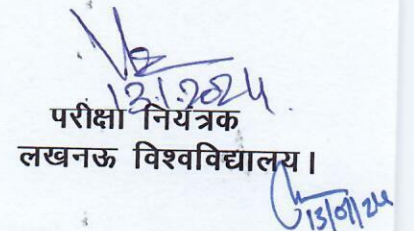 13.1.2024
परीक्षा नियंत्रक
लखनऊ विश्वविद्यालय।
13/01/24